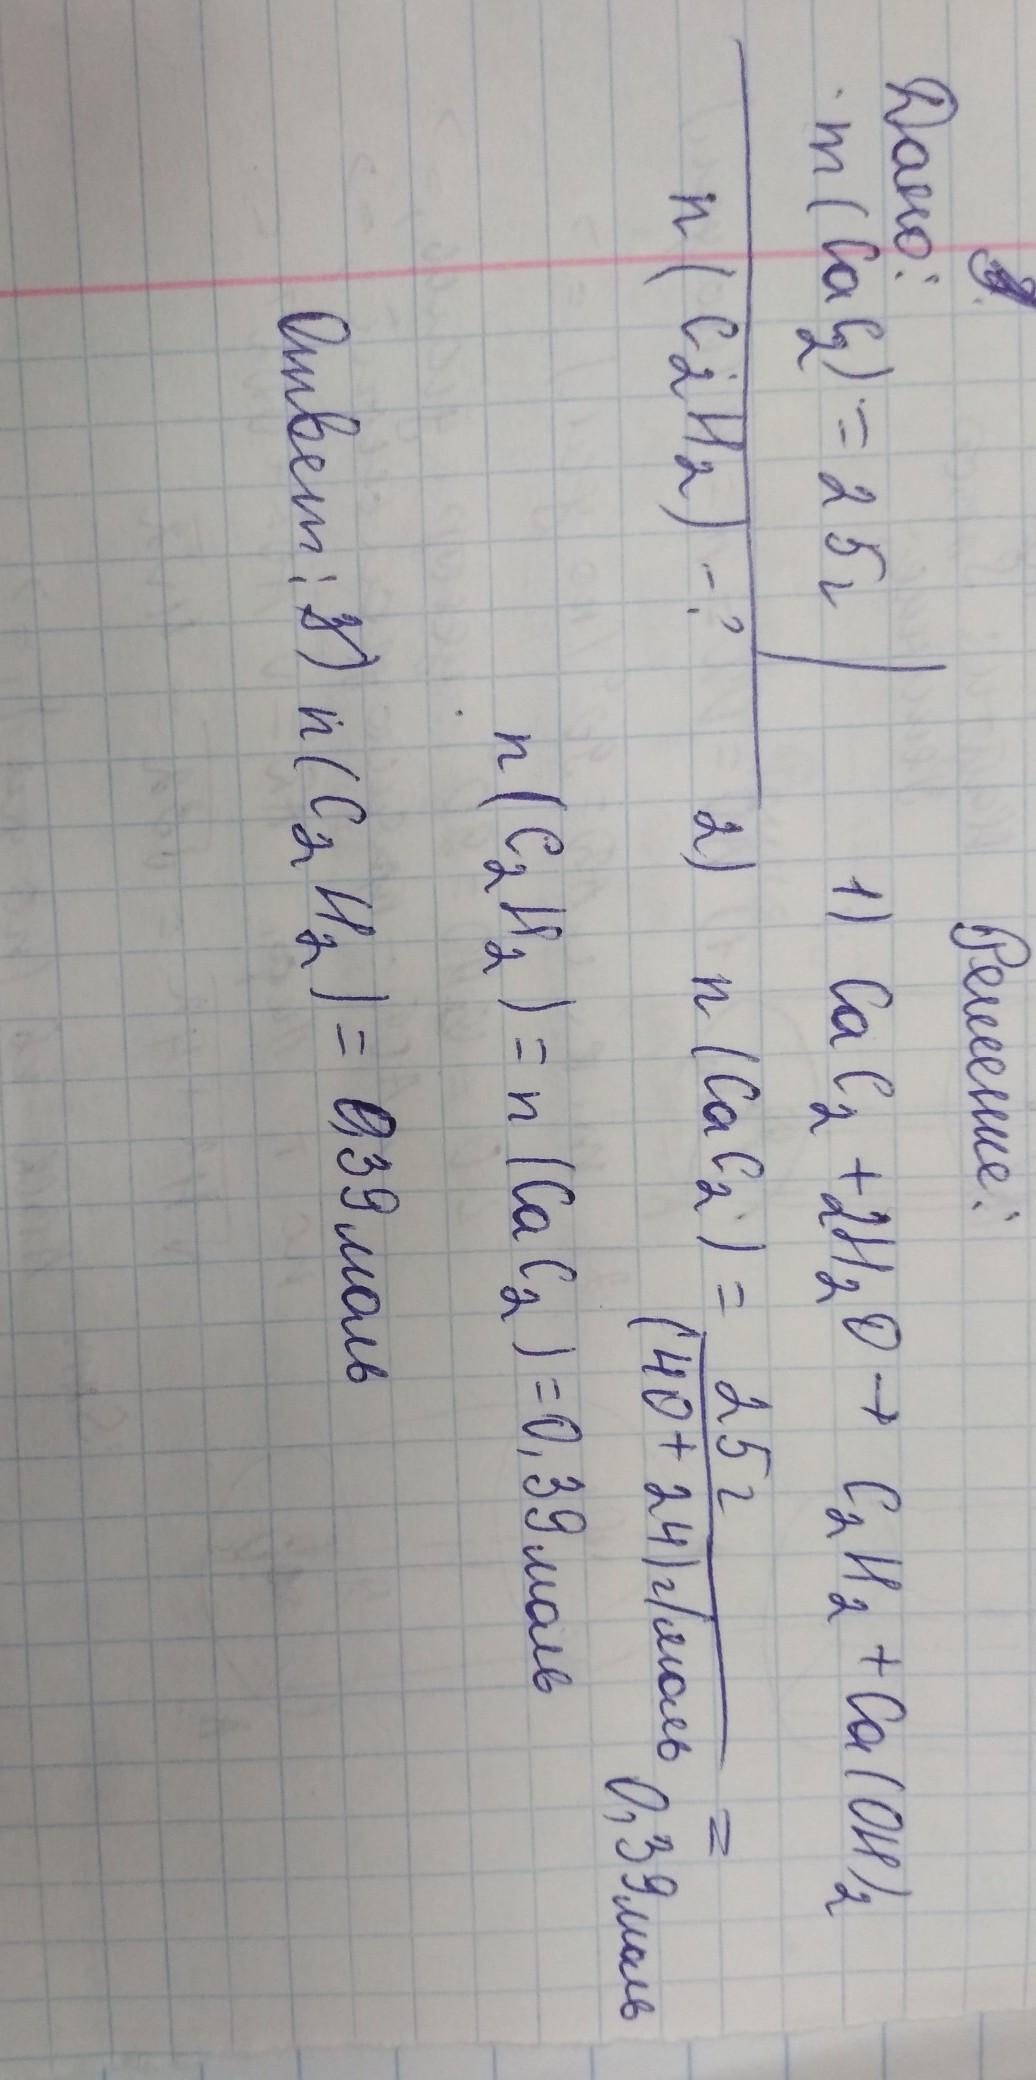 Дано:
m(CaC2) = 25г
n(C2H2) - ?
Решение:
1) CaC2 + 2H2O → C2H2 + Ca(OH)2
2) n(CaC2) = 25г / (40+24)г/моль = 0,39моль
n(C2H2) = n(CaC2) = 0,39моль
Ответ: n(C2H2) = 0,39моль